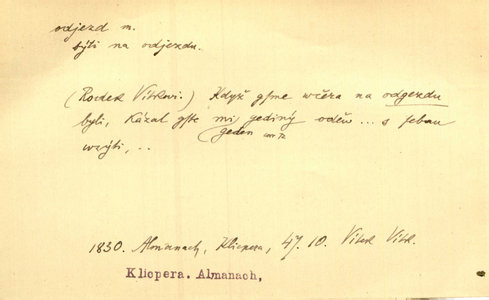 odjezd m.
býti na odjezdu.
(Radek Vítkovi.) Když gsme wčera na odgezdu
byli, kázal gste mi gediný oděw ... s sebau
geden
wzýti, ..
1830. Almanach, Klicpera, 47. 10. Vítek Vítk.
Klicpera. Almanach,